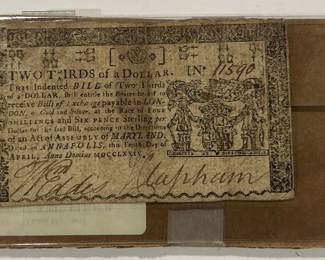 TWO THIRDS of a DOLLAR. No. 11590
THIS Indented BILL of Two Thirds
of a DOLLAR, shall entitle the Bearer hereof to
receive Bills of Exchange payable in LON-
DON, or Gold and Silver, at the Rate of FOUR
SHILLINGS and SIX PENCE Sterling per
Dollar for the said Bill, according to the Directions
of an ACT of ASSEMBLY of MARYLAND.
Dated in ANNAPOLIS, this Tenth Day of
APRIL, Anno Domini MDCCLXXIV.
J. Clapham